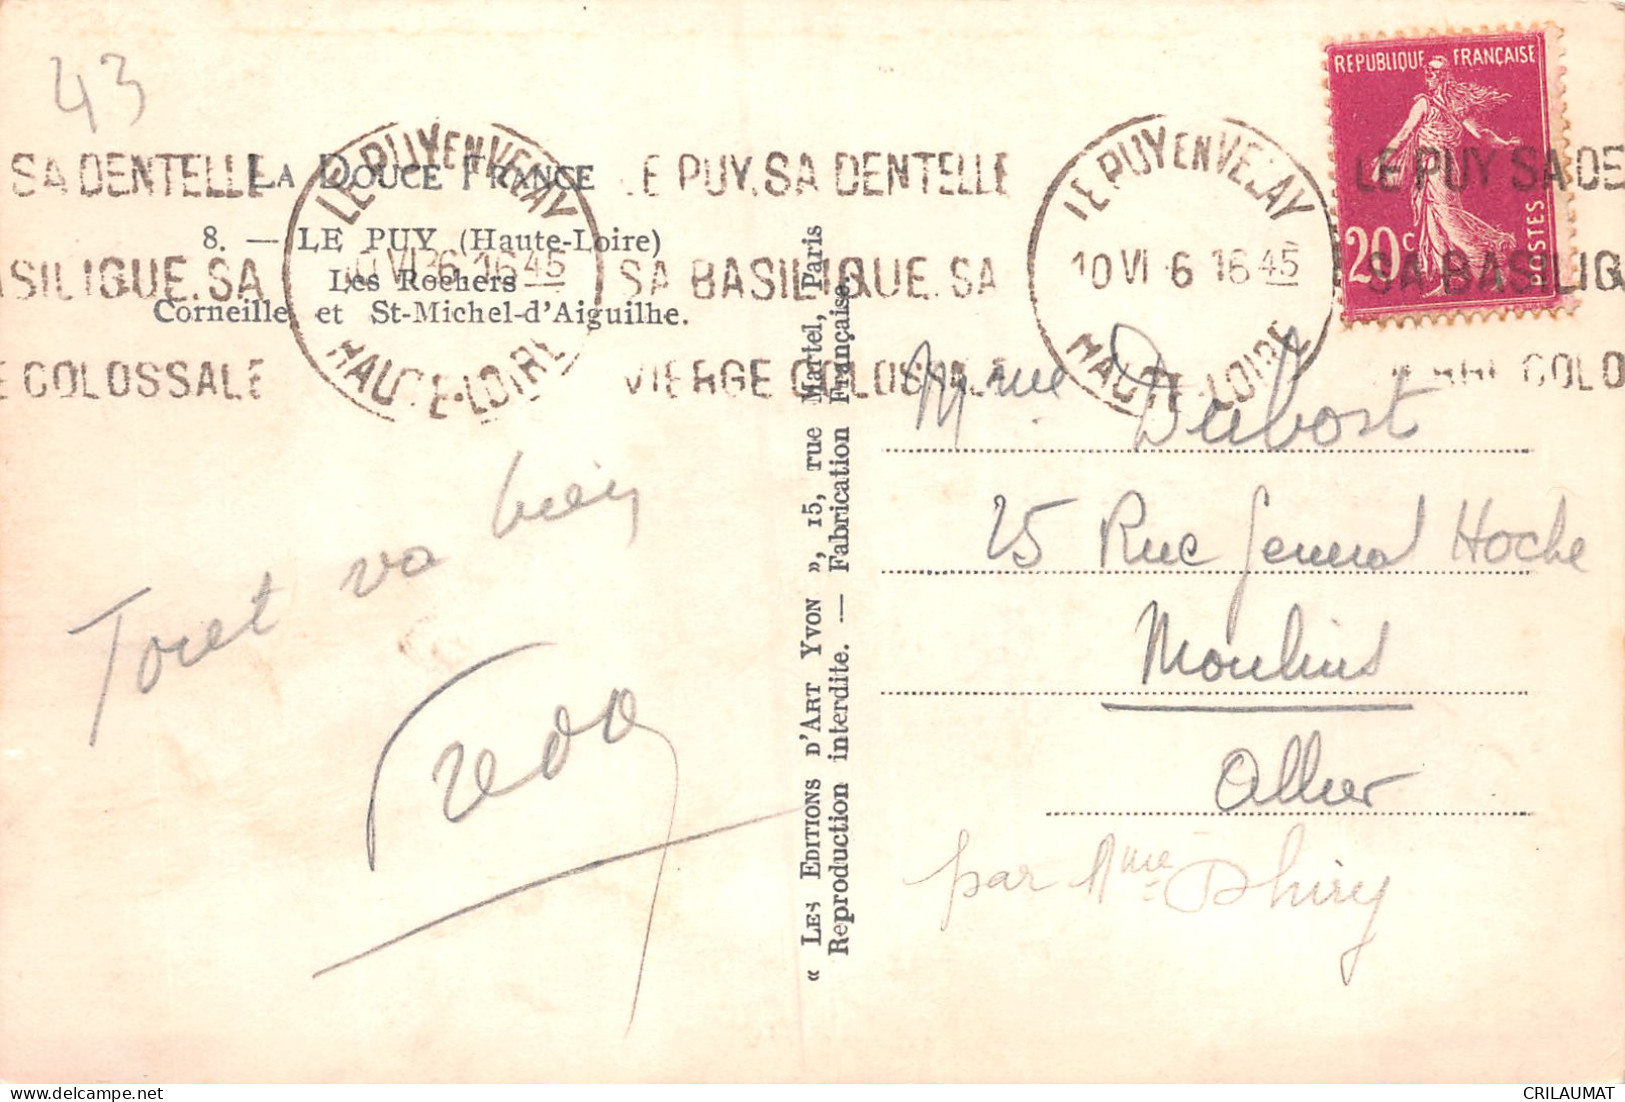 43
LA DOUCE FRANCE
8. — LE PUY (Haute-Loire)
Les Rochers
Corneille et St-Michel-d'Aiguilhe.
SA DENTELLE
SILIQUE.SA
E COLOSSALE
LE PUY EN VELAY
10 VI 36 16 45
HAUTE-LOIRE
LE PUY.SA DENTELLE
SA BASILIQUE.SA
VIERGE COLOSSALE
LE PUY EN VELAY
10 VI 6 16 45
HAUTE-LOIRE
REPUBLIQUE FRANÇAISE
20c
POSTES
LE PUY SA DE
SA BASILIQ
COLO
Tout va bien
« LES EDITIONS D'ART YVON », 15, rue Martel, Paris
Reproduction interdite. — Fabrication Française.
Mme Dubost
25 Rue General Hoche
Moulins
Allier
par Mme
CRILAUMAT